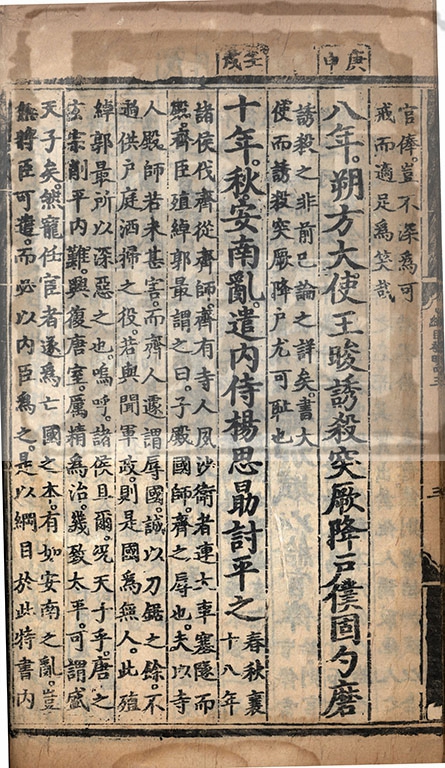 庚申
官俸。豈不深為可
戒而適足為笑哉
八年。朔方大使王晙誘殺突厥降户僕固勺磨
誘殺之非前已論之詳矣。書大
使而誘殺突厥降户尤可耻也
壬戌
十年。秋。安南亂。遣内侍楊思勗討平之
春秋襄
十八年
諸侯伐齊從齊師。齊有寺人夙沙衛者連大車塞隧而
殿。齊臣殖綽郭最謂之曰。子殿國師。齊之辱也。夫以寺
人殿師若未甚害。而齊人遽謂辱國。誠以刀鋸之餘。不
過供户庭洒掃之役。若與聞軍政。則是國為無人。此殖
綽郭最所以深惡之也。嗚呼。諸侯且爾。况天子乎。唐之
玄宗削平内難。興復唐室。厲精為治。幾致太平。可謂盛
天子矣。然寵任宦者遂為亡國之本。有如安南之亂。豈
無將臣可遣。而必以内臣為之。是以綱目於此特書内
三